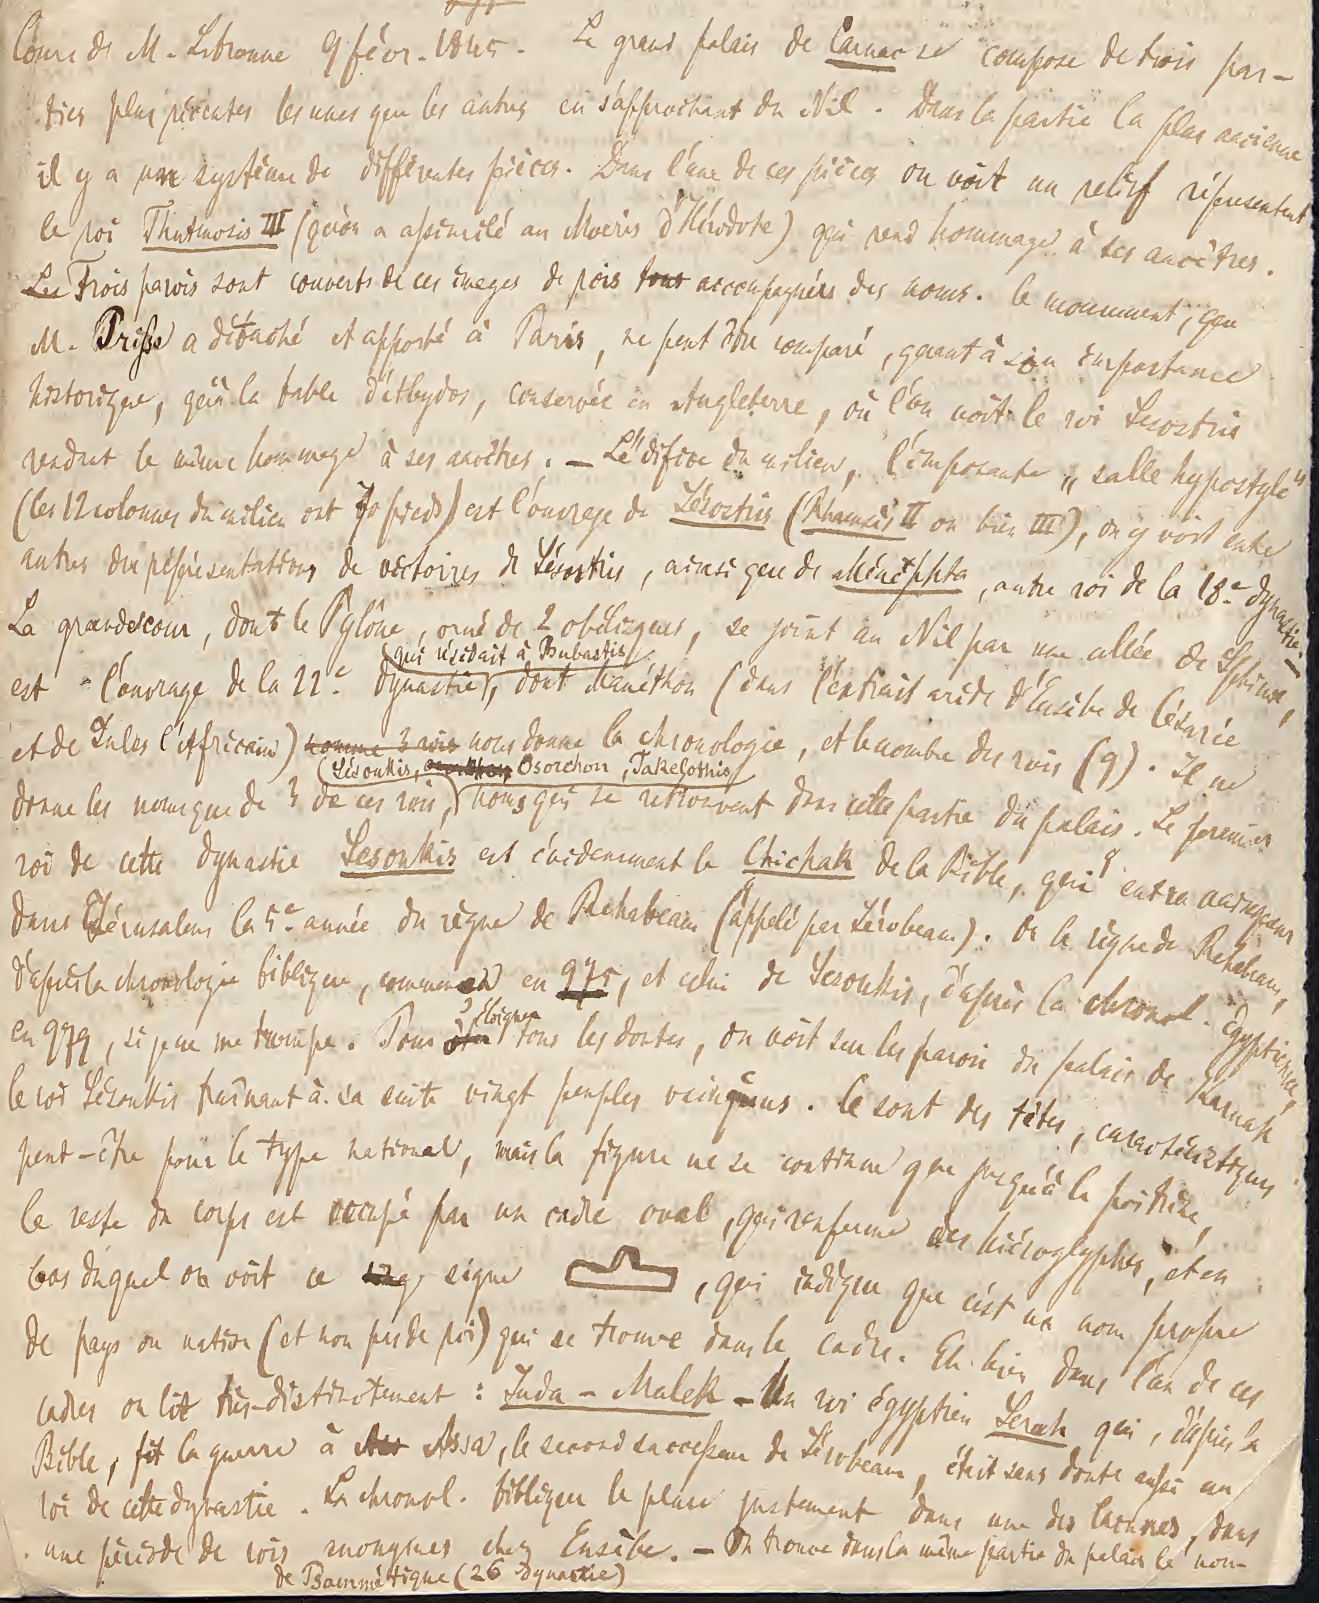 Cours de M. Letronne 9 févr. 1845. Le grand palais de Carnac se compose de trois par-
ties plus récentes les unes que les autres en s'approchant du Nil. Dans la partie la plus ancienne
il y a un système de différentes pièces. Dans l'une de ces pièces on voit un relief représentant
le roi Thutmosis III (qu'on a assimilé au Moeris d'Hérodote) qui rend hommage à ses ancêtres.
Les Trois parois sont couverts de ces images de rois tous accompagnés des noms. Ce monument, que
M. Prisse a détaché et apporté à Paris, ne peut être comparé, quant à son importance
historique, qu'à la table d'Abydos, conservée en Angleterre, où l'on voit le roi Sesostris
rendant le même hommage à ses ancêtres. — L'édifice du milieu, l'imposante „salle hypostyle“
(les 12 colonnes du milieu ont 70 pieds) est l'ouvrage de Sésostris (Rhamsès II ou bien III), on y voit entre
autres des représentations de victoires de Sésostris, ainsi que de Ménéphta, autre roi de la 18e dynastie. —
La grande cour, dont le Pylône, orné de 2 obélisques, se joint au Nil par une allée de Sphinx,
est l'ouvrage de la 22e dynastie (qui résidait à Bubastis), dont Manéthon (dans l'extrait aride d'Eusèbe de Césarée
et de Jules l'Africain) nomme 3 rois nous donne la chronologie, et le nombre des rois (9). Il ne
donne les noms que de 3 de ces rois, (Sésonkis, Osorchon, Takelothis) noms qui se retrouvent dans cette partie du palais. Le premier
roi de cette dynastie Sesonkis est évidemment le Chichak de la Bible, qui entra vainqueur
dans Jérusalem la 5e année du règne de Rehabeam (appelé par Jérobeam). Or le règne de Rehabeam,
d'après la chronologie biblique, commence en 975, et celui de Sesonkis, d'après la chronol. égyptienne,
en 979, si je ne me trompe. Pour éloigner tous les doutes, on voit sur les parois du palais de Karnak
le roi Sésonkis traînant à sa suite vingt peuples vaincus. Ce sont des têtes, caractéristiques
peut-être pour le type national, mais la figure ne se continue que jusqu'à la poitrine,
le reste du corps est occupé par un cadre oval, qui renferme des hiéroglyphes, et en
bas duquel on voit ce signe , qui indique que c'est un nom propre
de pays ou nation (et non pas de roi) qui se trouve dans le cadre. Eh bien dans l'un de ces
cadres on lit très-distinctement : Juda – Malek – Un roi égyptien Serah qui, d'après la
Bible, fit la guerre à Assa, le second successeur de Jérobeam, était sans doute aussi un
roi de cette dynastie. La chronol. biblique le place justement dans une des lacunes, dans
une période de rois anonymes chez Eusèbe. — On trouve dans la même partie du palais le nom
de Psammétique (26 Dynastie)